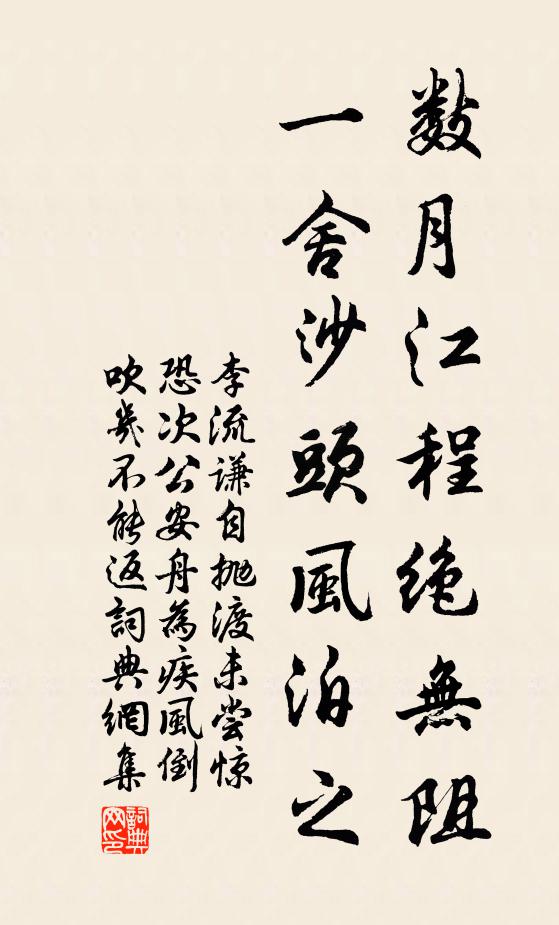 数月江程絶無阻
一舍沙頭風泊之
李流谦自抛渡未尝惊
恐次公安舟為疾風倒
吹幾不能返詞典網集
詞典
网印